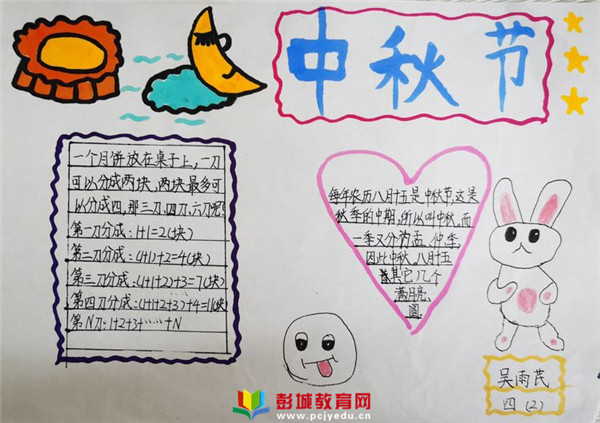 中秋节
一个月饼放在桌子上,一刀
可以分成两块,两块最多可
以分成四,那三刀、四刀、六刀呢?
第一刀分成:1+1=2(块)
第二刀分成:(1+1)+2=4(块)
第三刀分成:(1+1+2)+3=7(块)
第四刀分成:(1+1+2+3)+4=11(块)
第N刀:1+2+3+……+N
每年农历八月十五是中秋节,这是
秋季的中期,所以叫中秋,而
一季又分为孟、仲、季,
因此中秋,八月十五
其它几个
满月亮、
圆
吴雨芪
四(2)
彭城教育网
www.pcjyedu.cn